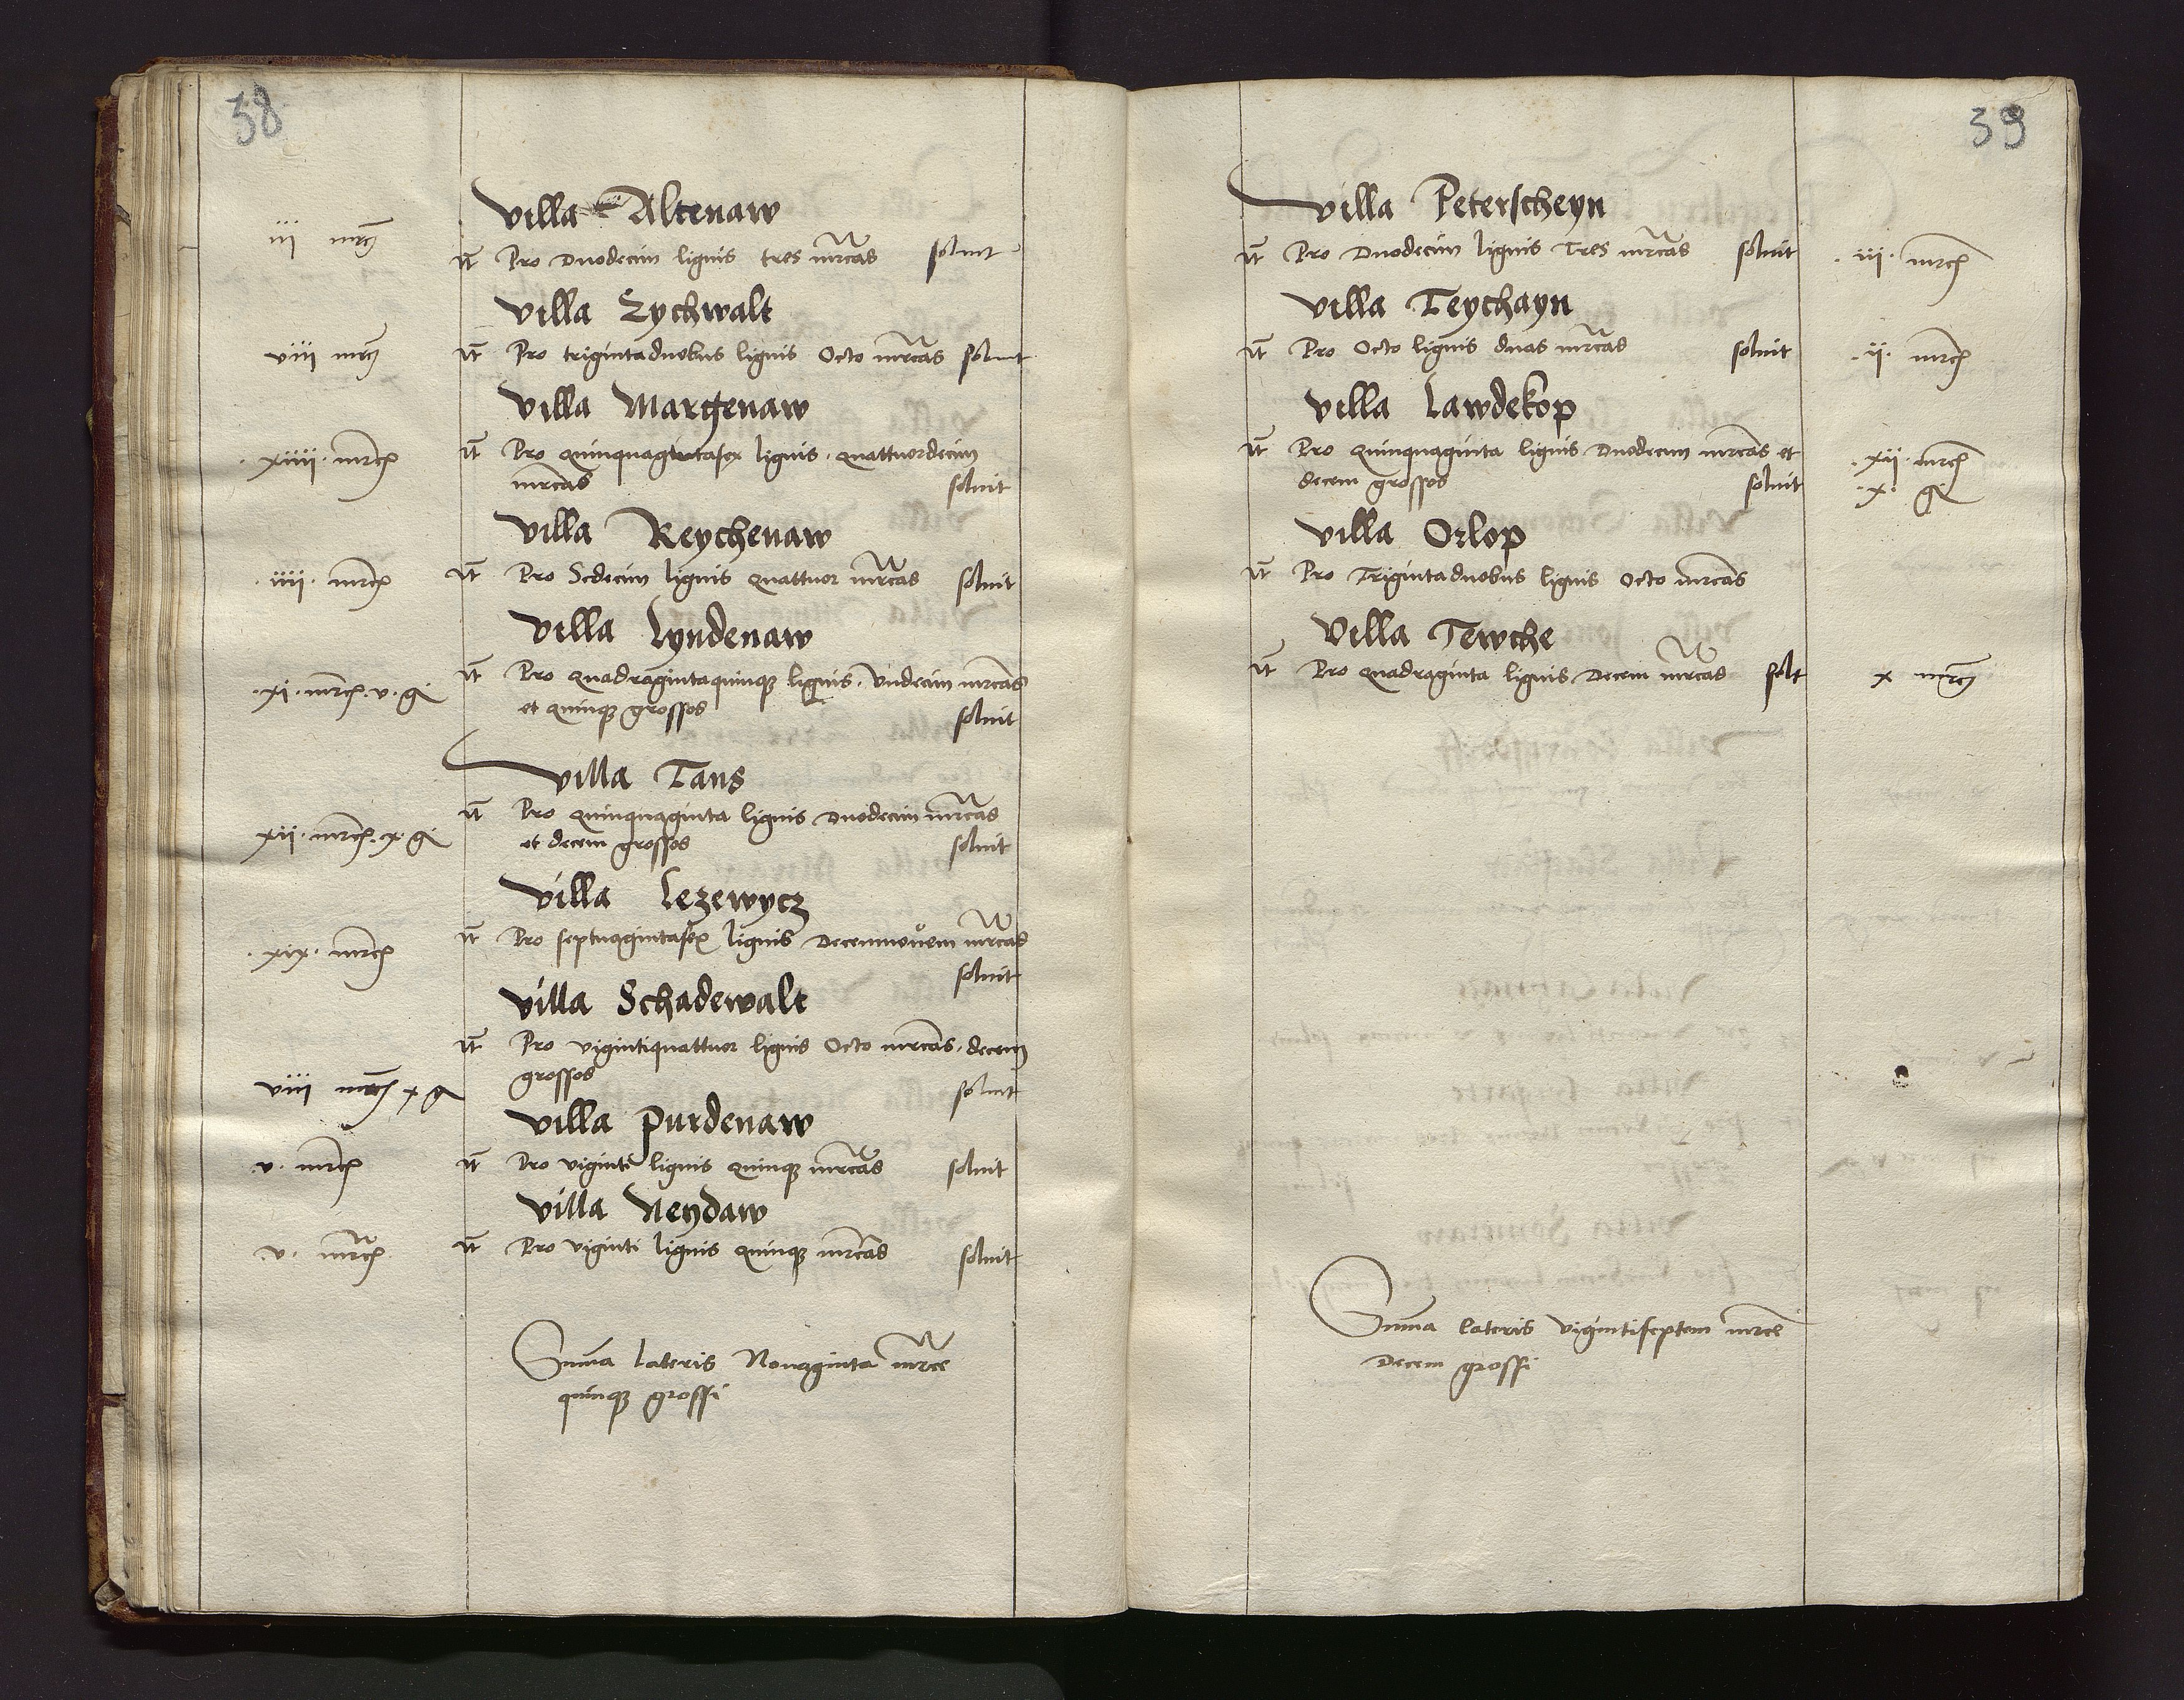 38
villa Altenaw
iii mrcs
It Pro Duodecim lignis tres mrcas soluit
villa Eychwalt
viii mrcs
It Pro trigintaduobus lignis Octo mrcas soluit
villa Margenaw
xiiii mrcs
It Pro quinquagintasex lignis quattuordecim
mrcas soluit
villa Reychenaw
iiii mrcs
It Pro Sedecim lignis quattuor mrcas soluit
villa Lyndenaw
xi mrcs v g
It Pro quadragintaquinque lignis Vndecim mrcas
et quinque grossos soluit
villa Tans
xii mrcs x g
It Pro quinquaginta lignis Duodecim mrcas
et decem grossos soluit
villa Lezewycz
xix mrcs
It Pro septuagintasex lignis Decemnouem mrcas
soluit
villa Schadewalt
It Pro vigintiquattuor lignis Octo mrcas decem
grossos soluit
viii mrcs x g
villa Purdenaw
v mrcs
It Pro viginti lignis quinque mrcas soluit
villa Neydaw
v mrcs
It Pro viginti lignis quinque mrcas soluit
Summa lateris Nonaginta mrce
quinque grossi
39
villa Peterscheyn
It Pro Duodecim lignis Tres mrcas soluit iii mrcs
villa Teychayn
It Pro Octo lignis duas mrcas soluit ii mrcs
villa Lawdekop
It Pro quinquaginta lignis Duodecim mrcas et xii mrcs
decem grossos soluit x g
villa Orlop
It Pro Trigintaduobus lignis Octo mrcas
villa Tewche
It Pro quadraginta lignis Decem mrcas solt x mrcs
Summa lateris vigintiseptem mrce
Decem grossi